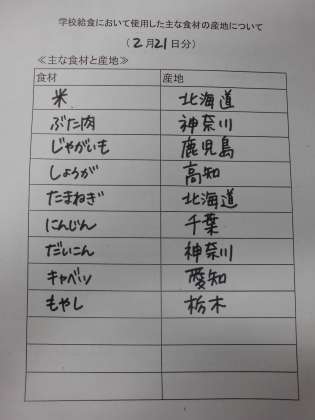 学校給食において使用した主な食材の産地について
(2月21日分)
≪主な食材と産地≫
食材 産地
米 北海道
ぶた肉 神奈川
じゃがいも 鹿児島
しょうが 高知
たまねぎ 北海道
にんじん 千葉
だいこん 神奈川
キャベツ 愛知
もやし 栃木